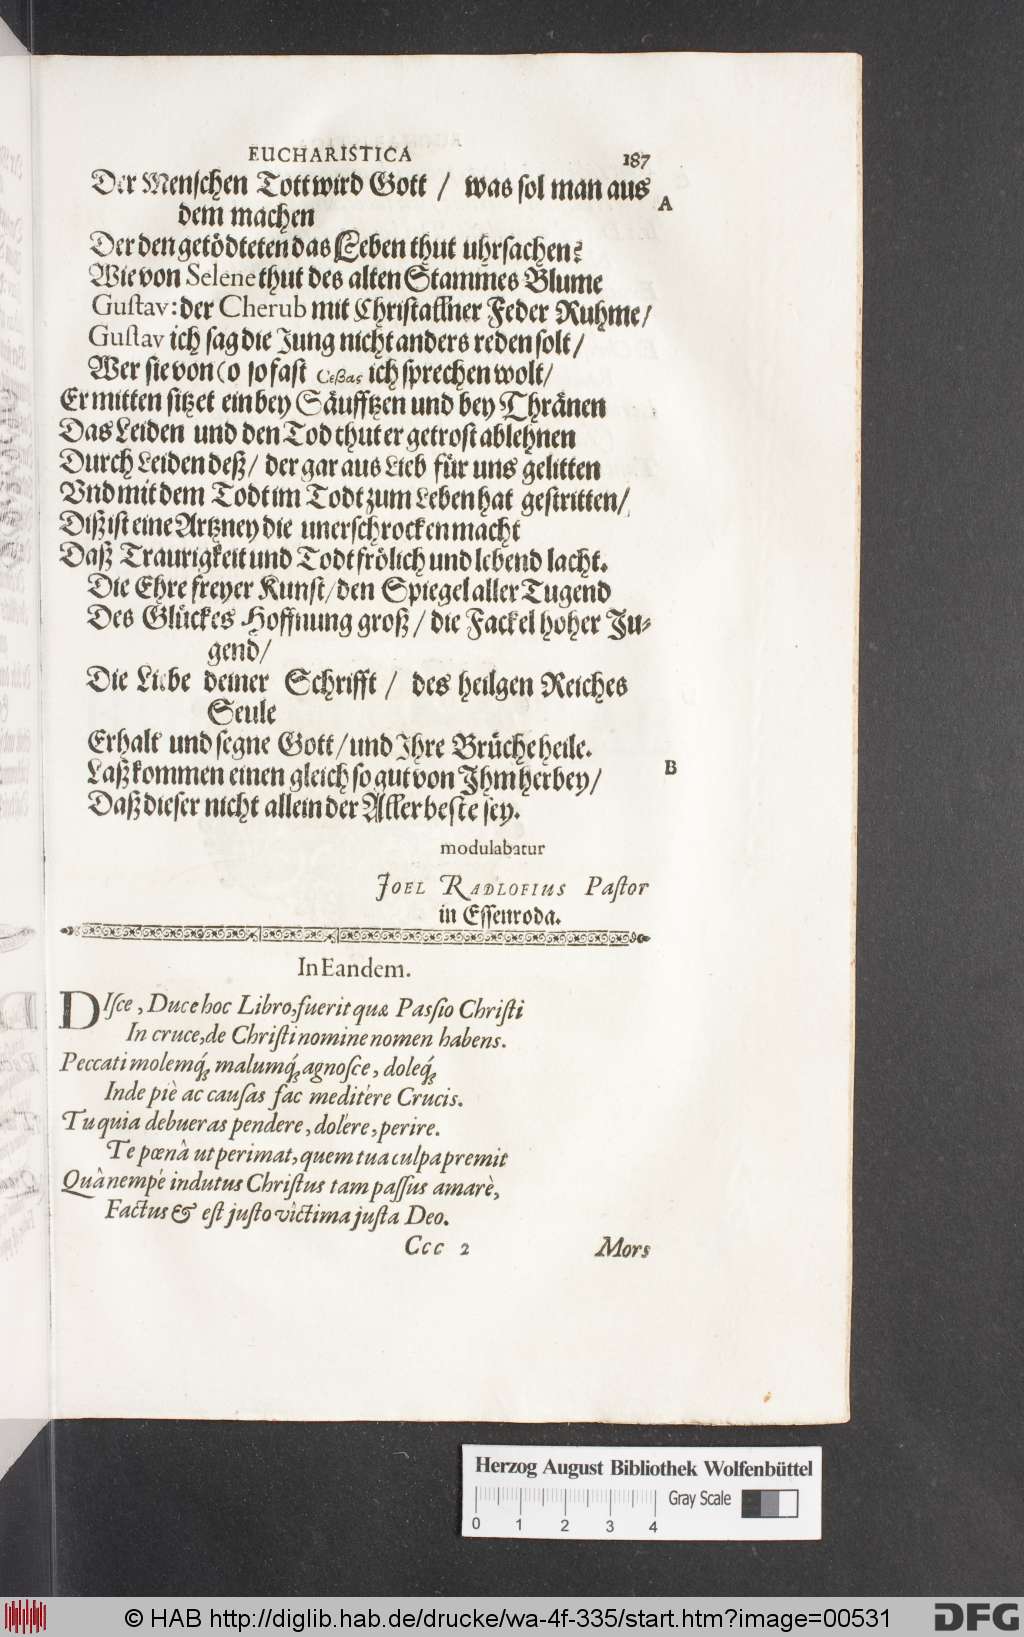 EUCHARISTICA 187
Der Menſchen Tott wird Gott / was ſol man aus
dem machen
A
Der den getödteten das Leben thut uhrſachen?
Wie von Selene thut des alten Stammes Blume
Guſtav: der Cherub mit Chriſtallner Feder Ruhme/
Guſtav ich ſag die Jung nicht anders reden ſolt/
Wer ſie von (o ſo faſt Cεβας ich ſprechen wolt/
Er mitten ſitzet ein bey Säufftzen und bey Thränen
Das Leiden und den Tod thut er getroſt ablehnen
Durch Leiden deß/ der gar aus Lieb für uns gelitten
Vnd mit dem Todt im Todt zum Leben hat geſtritten/
Diß iſt eine Artzney die unerſchrocken macht
Daß Traurigkeit und Todt frölich und lebend lacht.
Die Ehre freyer Kunſt/ den Spiegel aller Tugend
Des Glückes Hoffnung groß/ die Fackel hoher Ju-
gend/
Die Liebe deiner Schrifft / des heilgen Reiches
Seule
Erhalt und ſegne Gott/ und Ihre Brüche heile.
Laß kommen einen gleich ſo gut von Ihm herbey/
B
Daß dieſer nicht allein der Allerbeſte ſey.
modulabatur
JOEL RADLOFIUS Paſtor
in Eſſenroda.
In Eandem.
DIſce, Duce hoc Libro, fuerit quæ Paſsio Chriſti
In cruce, de Chriſti nomine nomen habens.
Peccati molemq́; malumq́; agnoſce, doleq́;
Inde piè ac cauſas fac meditére Crucis.
Tu quia debueras pendere, dolére, perire.
Te pœnâ ut perimat, quem tua culpa premit
Quâ nempé indutus Chriſtus tam paſſus amarè,
Factus & eſt juſto victima juſta Deo.
Ccc 2 Mors
Herzog August Bibliothek Wolfenbüttel
Gray Scale
0 1 2 3 4
© HAB http://diglib.hab.de/drucke/wa-4f-335/start.htm?image=00531
DFG